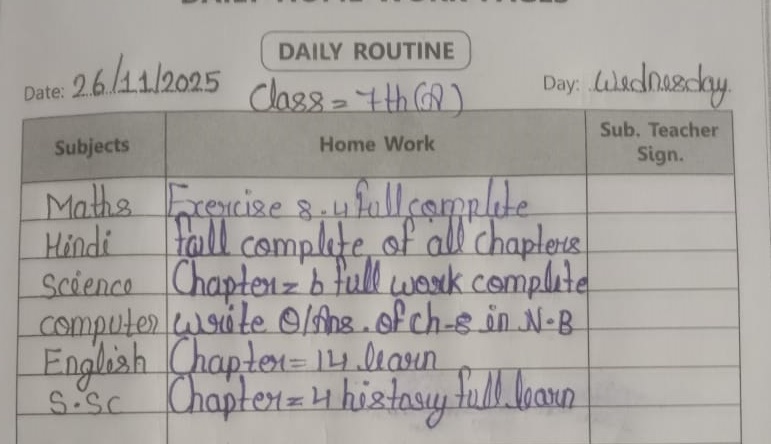 DAILY ROUTINE
Date: 26/11/2025 Day: Wednesday.
Class = 7th
Subjects Home Work Sub. Teacher Sign.
Maths Exercise 8.4 full complete
Hindi full complete of all chapters
Science Chapter = 6 full work complete
computer write Q/Ans. of ch-8 in N.B
English Chapter = 14 learn
S.Sc Chapter = 4 histary full learn